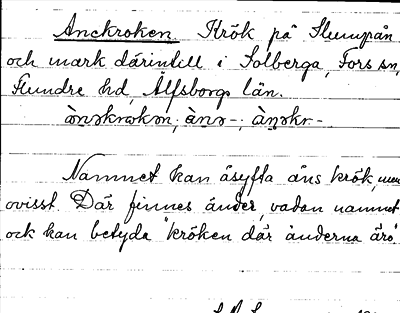 Anckroken Krök på Slumpån
och mark därintill i Solberga, Fors sn,
Flundre hd, Älfsborgs län.
ànəkrəkən; ànə-; àŋəkr-
Namnet kan åsyfta åns krök, men
ovisst. Där finnes änder, vadan namnet
ock kan betyda "kröken där änderna äro"